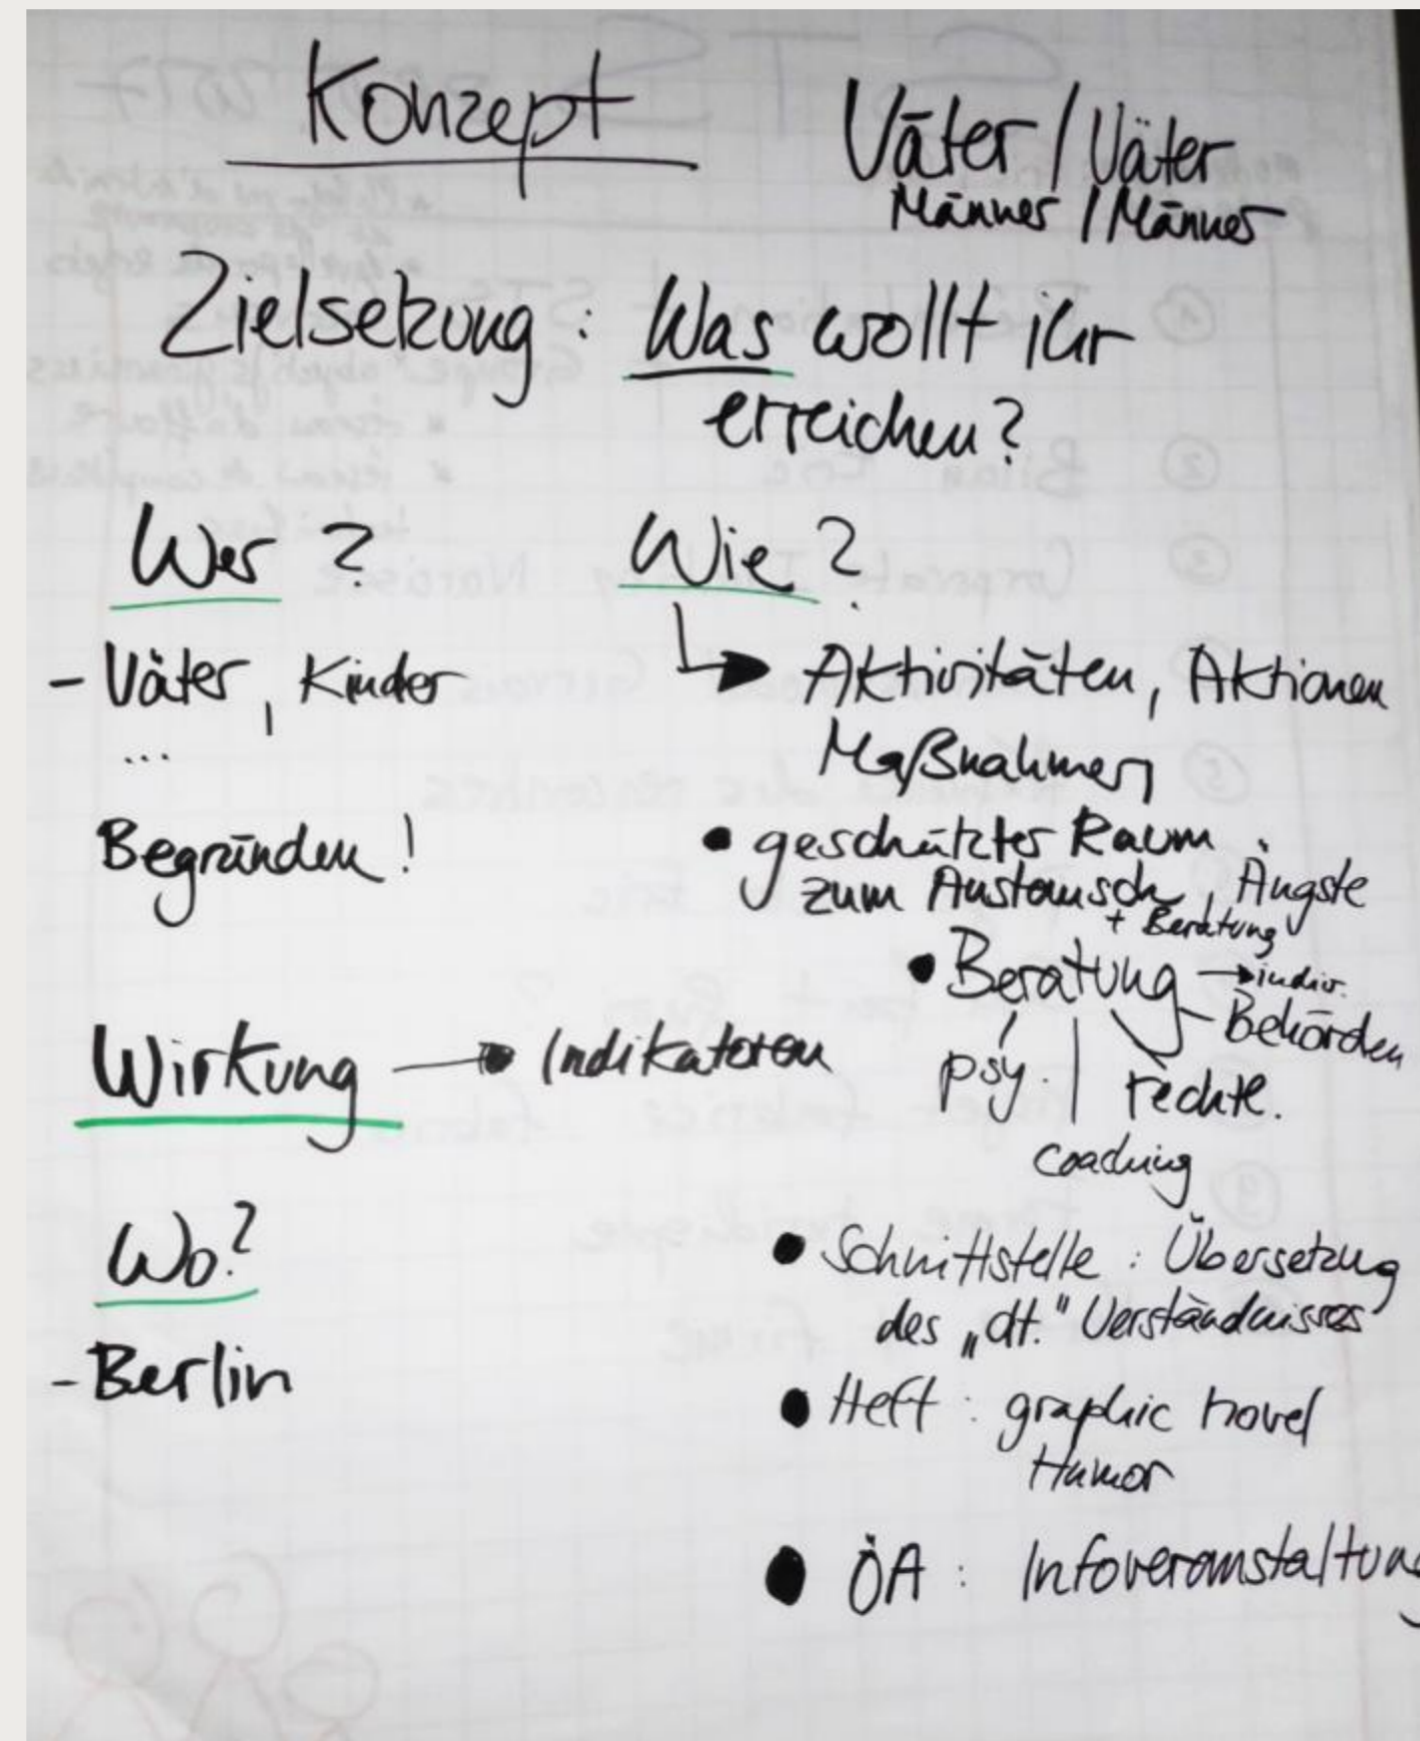 Konzept
Väter / Väter
Männer / Männer
Zielsetzung : Was wollt ihr
erreichen?
Wer ?
- Väter, Kinder
...
Begründen !
Wie ?
Aktivitäten, Aktionen
Maßnahmen
• geschützter Raum
zum Austausch, Ängste
+ Beratung
• Beratung → indiv.
Behörden
psy. | rechtl.
Coaching
Wirkung → Indikatoren
Wo?
- Berlin
• Schnittstelle : Übersetzung
des „dt." Verständnisses
• Heft : graphic novel
Humor
• ÖA : Infoveranstaltung